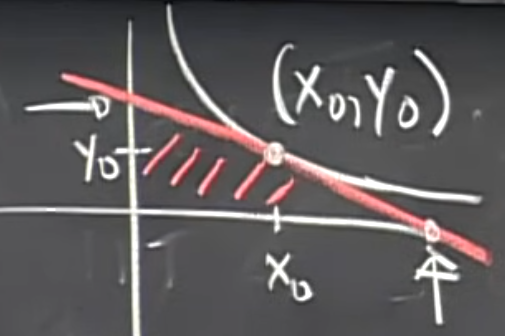 (x₀, y₀)
y₀
x₀